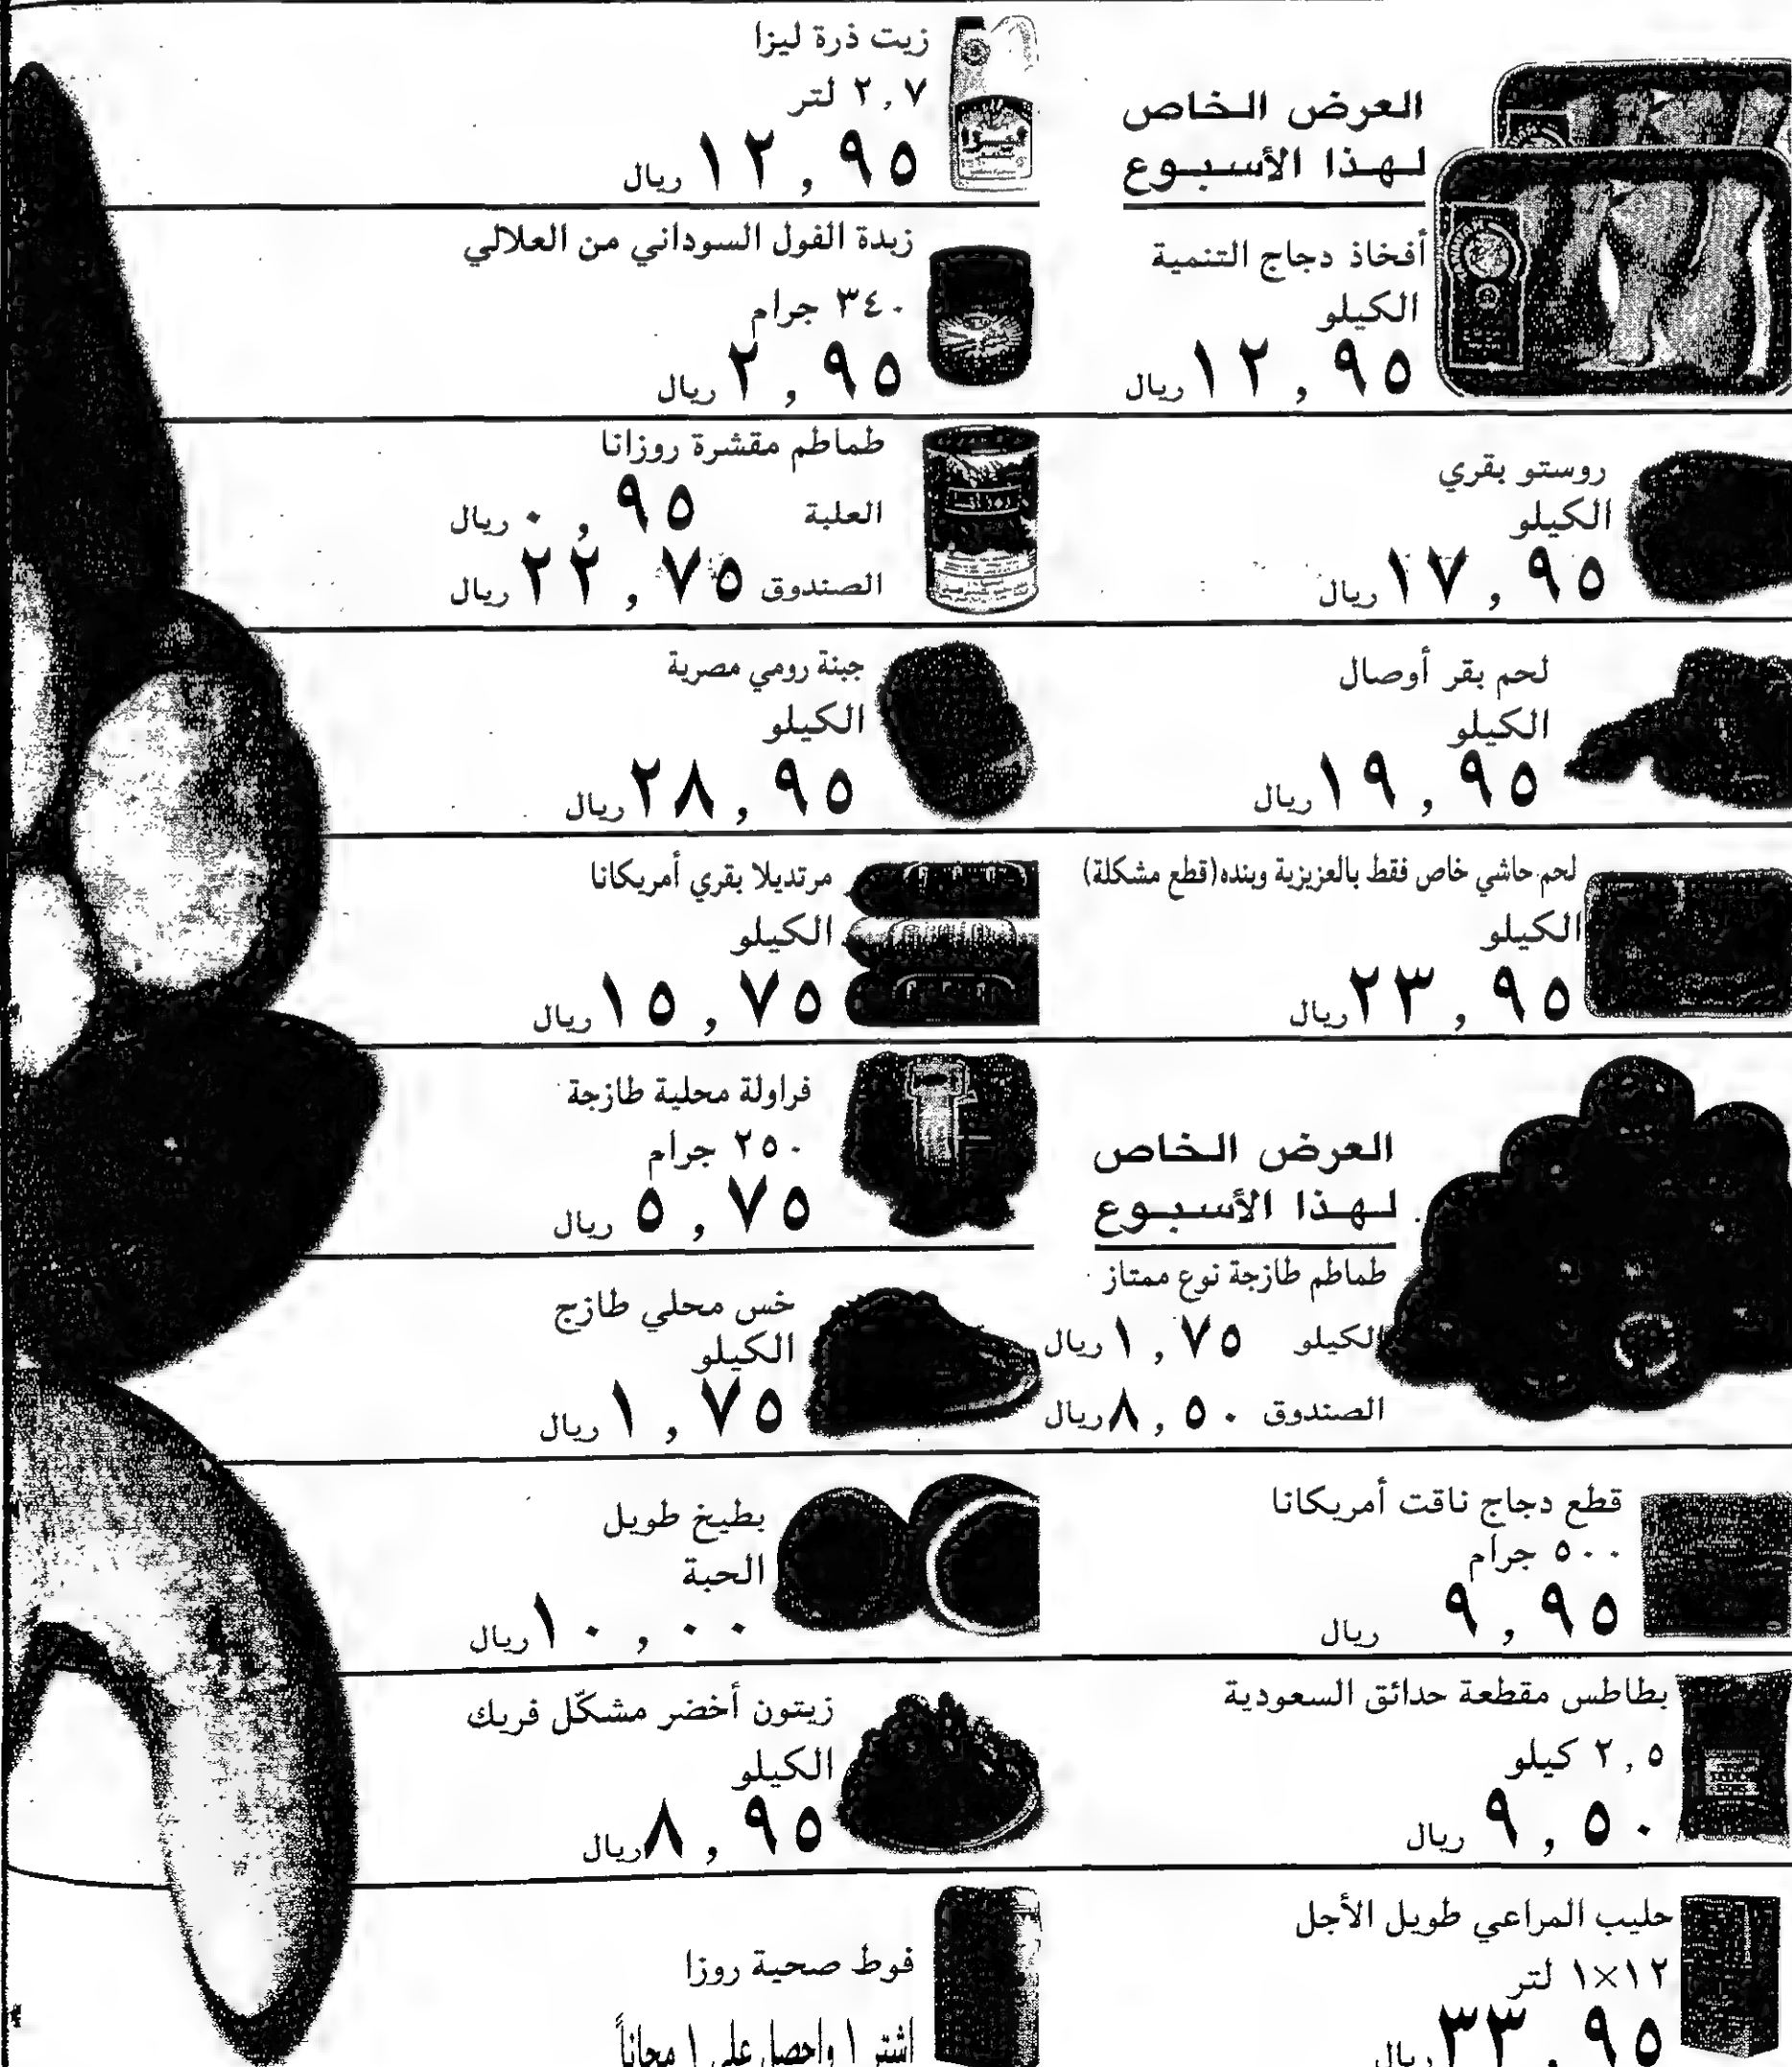 العرض الخاص
لهذا الأسبوع
أفخاذ دجاج التنمية
الكيلو
١٢,٩٥ ريال
روستو بقري
الكيلو
١٧,٩٥ ريال
لحم بقر أوصال
الكيلو
١٩,٩٥ ريال
لحم حاشي خاص فقط بالعزيزية وبنده (قطع مشكلة)
الكيلو
٢٣,٩٥ ريال
العرض الخاص
لهذا الأسبوع
طماطم طازجة نوع ممتاز
الكيلو ١,٧٥ ريال
الصندوق ٨,٥٠ ريال
قطع دجاج ناقت أمريكانا
٥٠٠ جرام
٩,٩٥ ريال
بطاطس مقطعة حدائق السعودية
٢,٥ كيلو
٩,٥٠ ريال
حليب المراعي طويل الأجل
١٢×١ لتر
٣٣,٩٥ ريال
زيت ذرة ليزا
٢,٧ لتر
١٢,٩٥ ريال
زبدة الفول السوداني من العلالي
٣٤٠ جرام
٢,٩٥ ريال
طماطم مقشرة روزانا
العلبة ٠,٩٥ ريال
الصندوق ٢٢,٧٥ ريال
جبنة رومي مصرية
الكيلو
٢٨,٩٥ ريال
مرتديلا بقري أمريكانا
الكيلو
١٥,٧٥ ريال
فراولة محلية طازجة
٢٥٠ جرام
٥,٧٥ ريال
خس محلي طازج
الكيلو
١,٧٥ ريال
بطيخ طويل
الحبة
١٠,٠٠ ريال
زيتون أخضر مشكّل فريك
الكيلو
٨,٩٥ ريال
فوط صحية روزا
اشتر ١ واحصل على ١ مجاناً